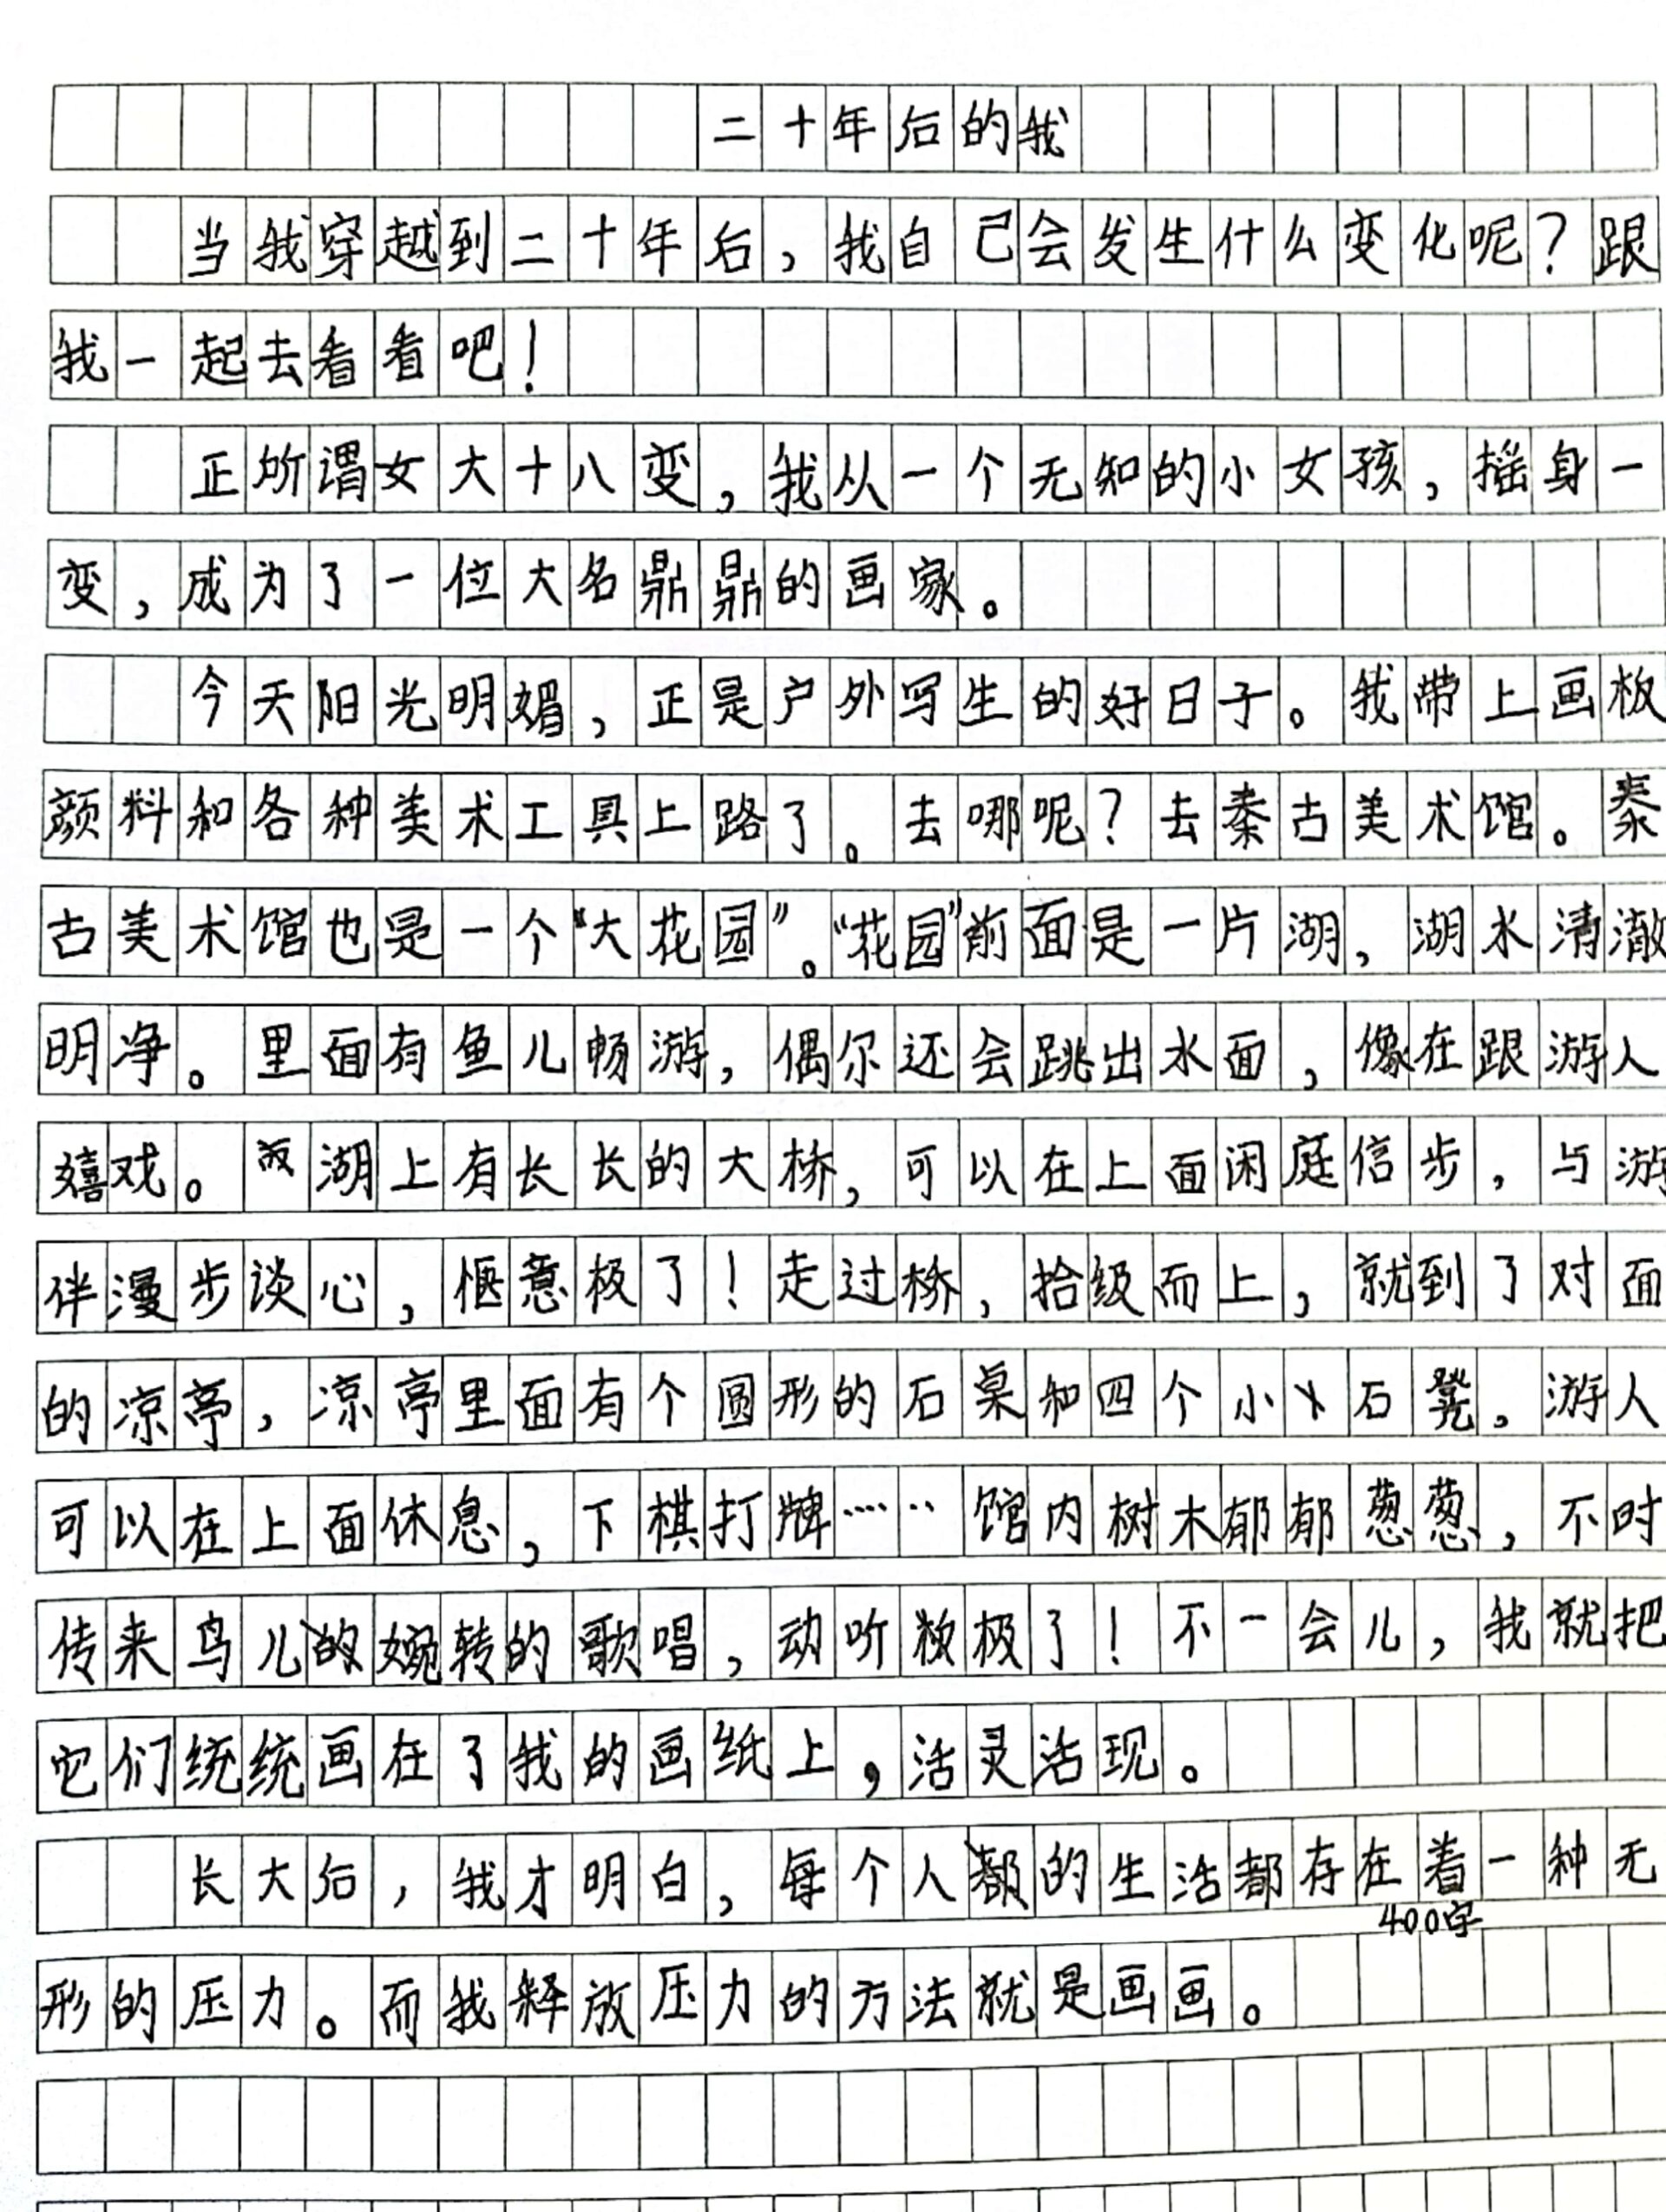 二十年后的我
当我穿越到二十年后，我自己会发生什么变化呢？跟
我一起去看看吧！
正所谓女大十八变，我从一个无知的小女孩，摇身一
变，成为了一位大名鼎鼎的画家。
今天阳光明媚，正是户外写生的好日子。我带上画板
颜料和各种美术工具上路了。去哪呢？去秦古美术馆。泰
古美术馆也是一个“大花园”。“花园”前面是一片湖，湖水清澈
明净。里面有鱼儿畅游，偶尔还会跳出水面，像在跟游人
嬉戏。湖上有长长的大桥，可以在上面闲庭信步，与游
伴漫步谈心，惬意极了！走过桥，拾级而上，就到了对面
的凉亭，凉亭里面有个圆形的石桌和四个小石凳。游人
可以在上面休息，下棋打牌……馆内树木郁郁葱葱，不时
传来鸟儿婉转的歌唱，动听极了！不一会儿，我就把
它们统统画在了我的画纸上，活灵活现。
长大后，我才明白，每个人的生活都存在着一种无
400字
形的压力。而我释放压力的方法就是画画。